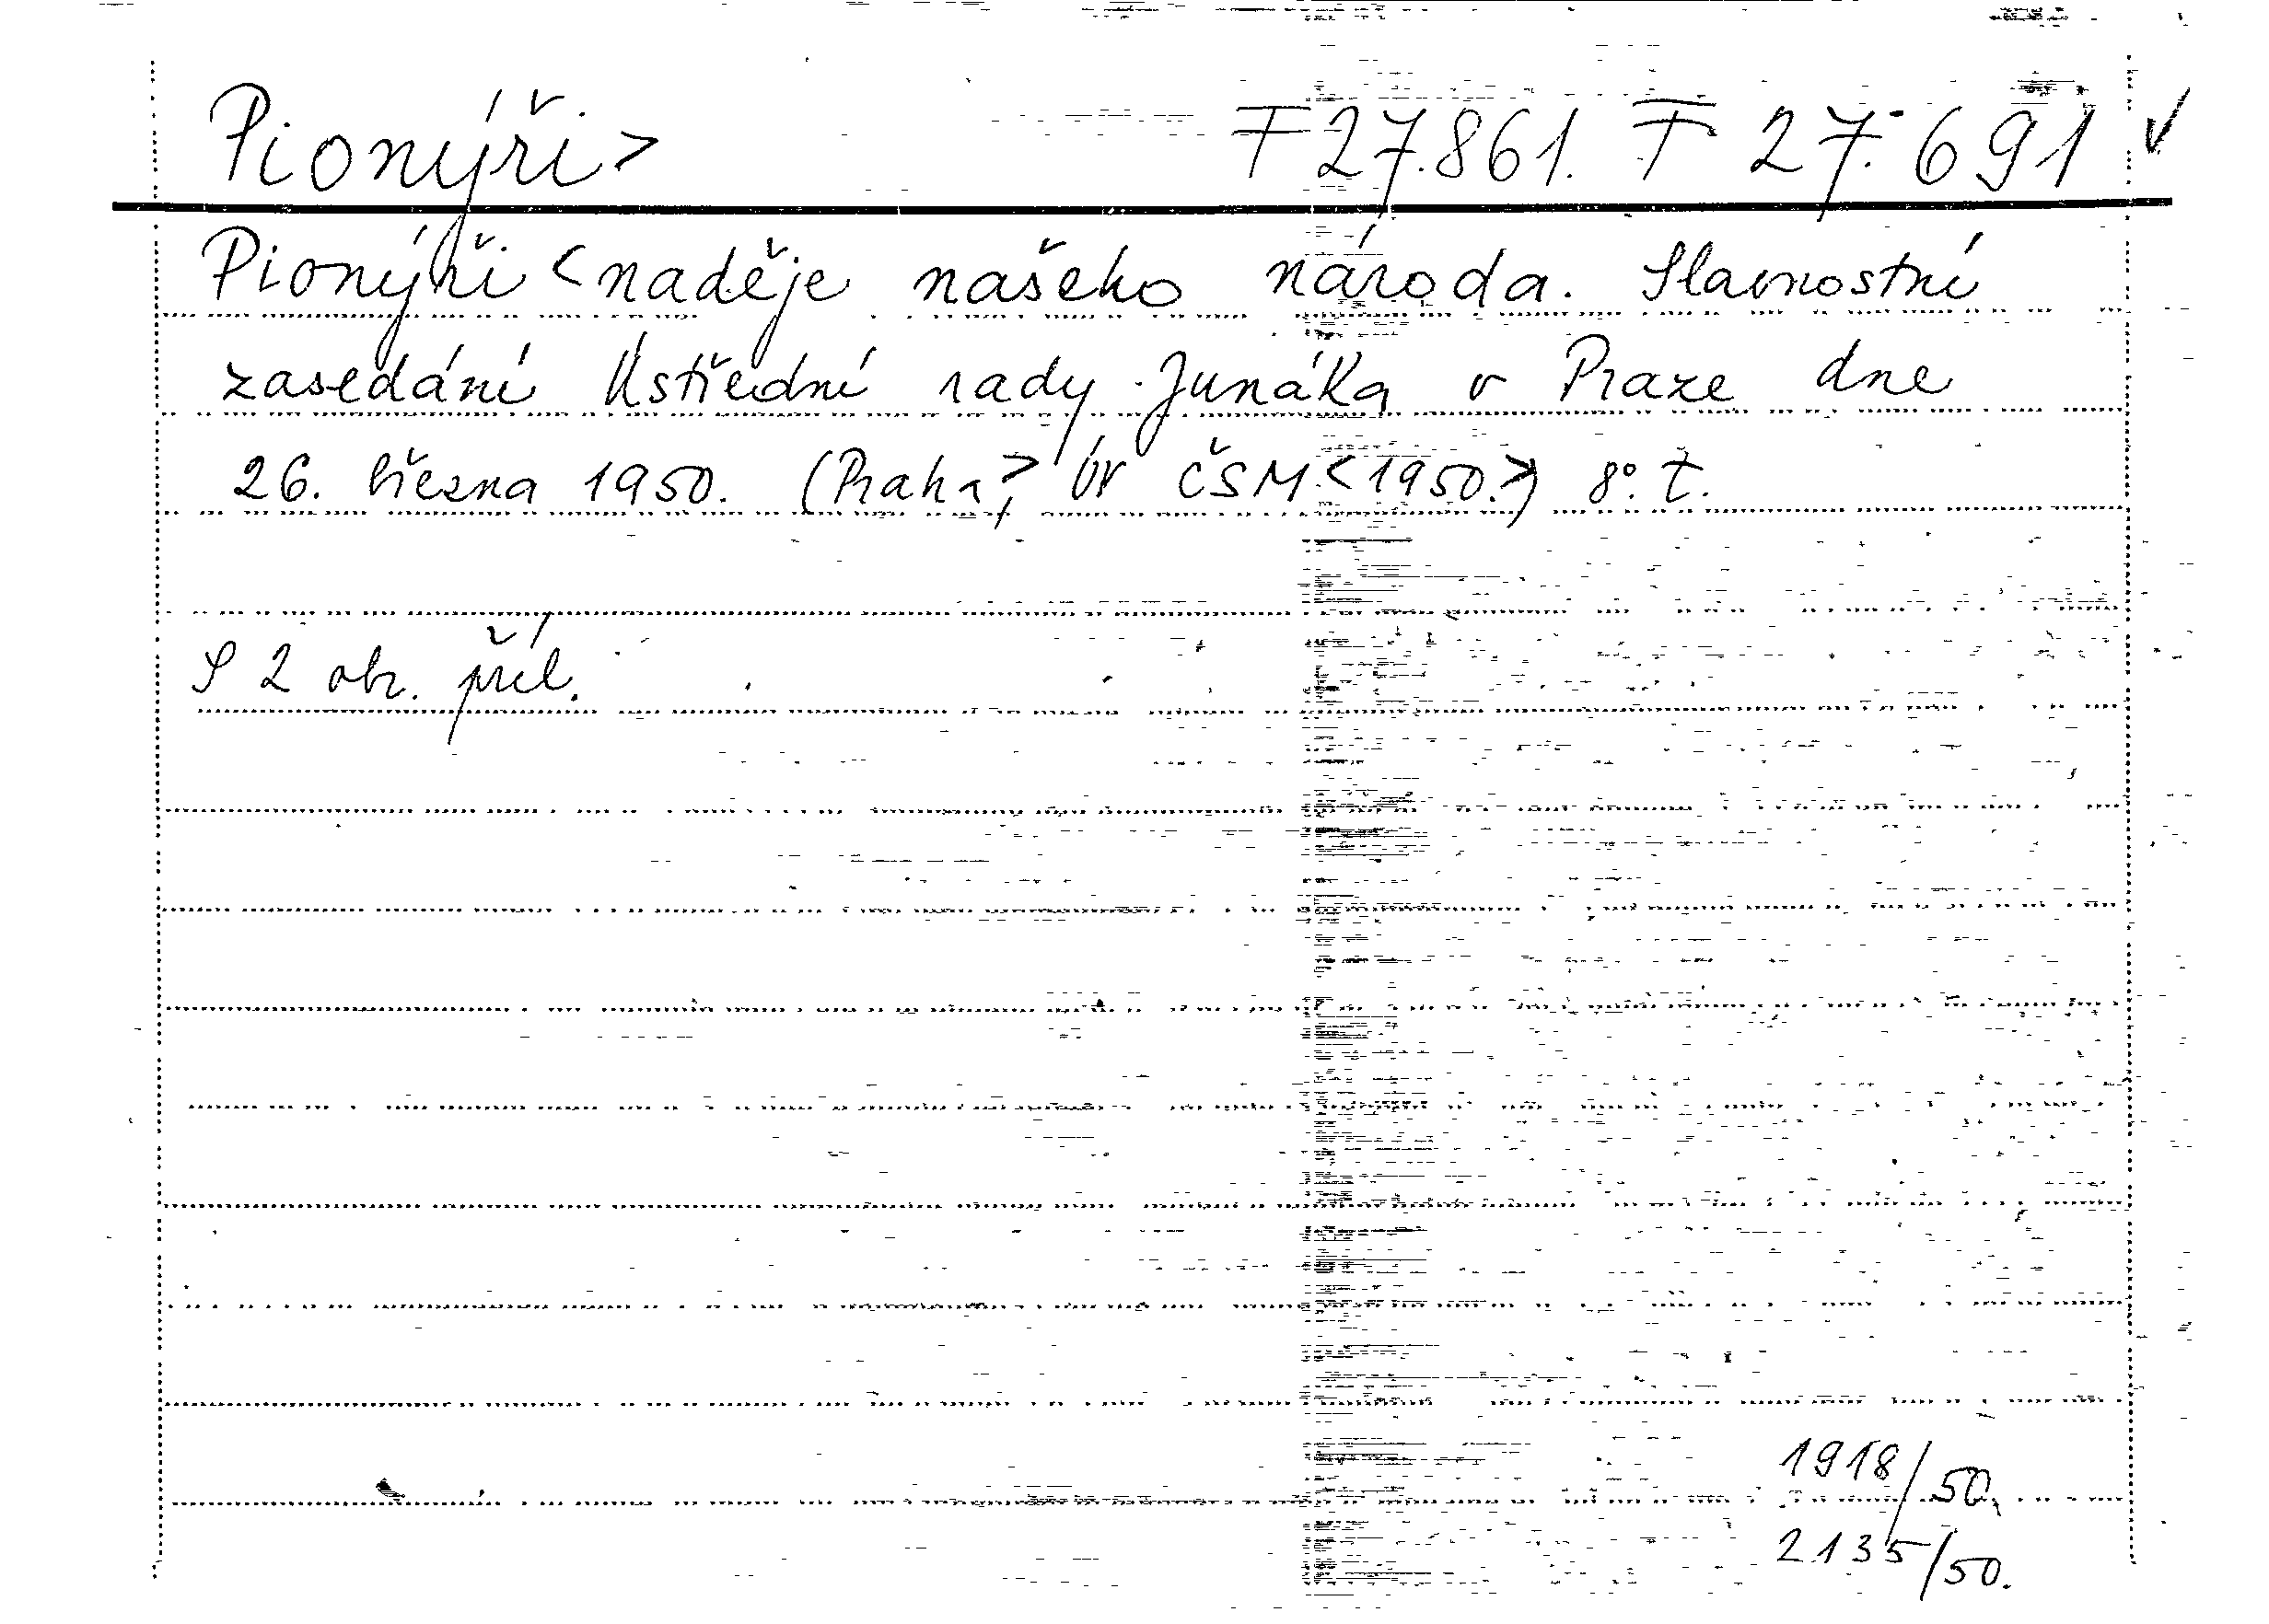 Pionýři> F 27.861. F 27.691 ✓
Pionýři < naděje našeho národa. Slavnostní
zasedání Ústřední rady Junáka v Praze dne
26. března 1950. (Praha>, ÚV ČSM <1950.>) 8°. t.
S 2 obr. příl.
1918/50.
2135/50.